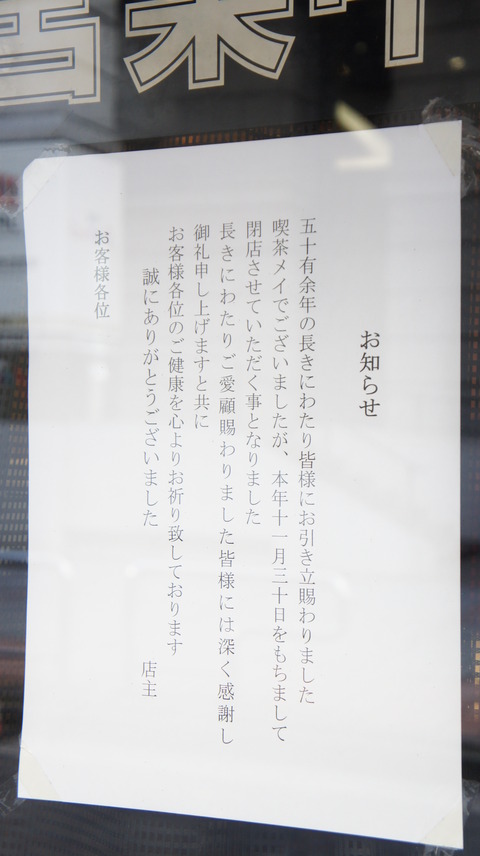 営業中
お知らせ
五十有余年の長きにわたり皆様にお引き立賜わりました
喫茶メイでございましたが、本年十一月三十日をもちまして
閉店させていただく事となりました
長きにわたりご愛顧賜わりました皆様には深く感謝し
御礼申し上げますと共に
お客様各位のご健康を心よりお祈り致しております
誠にありがとうございました
店主
お客様各位